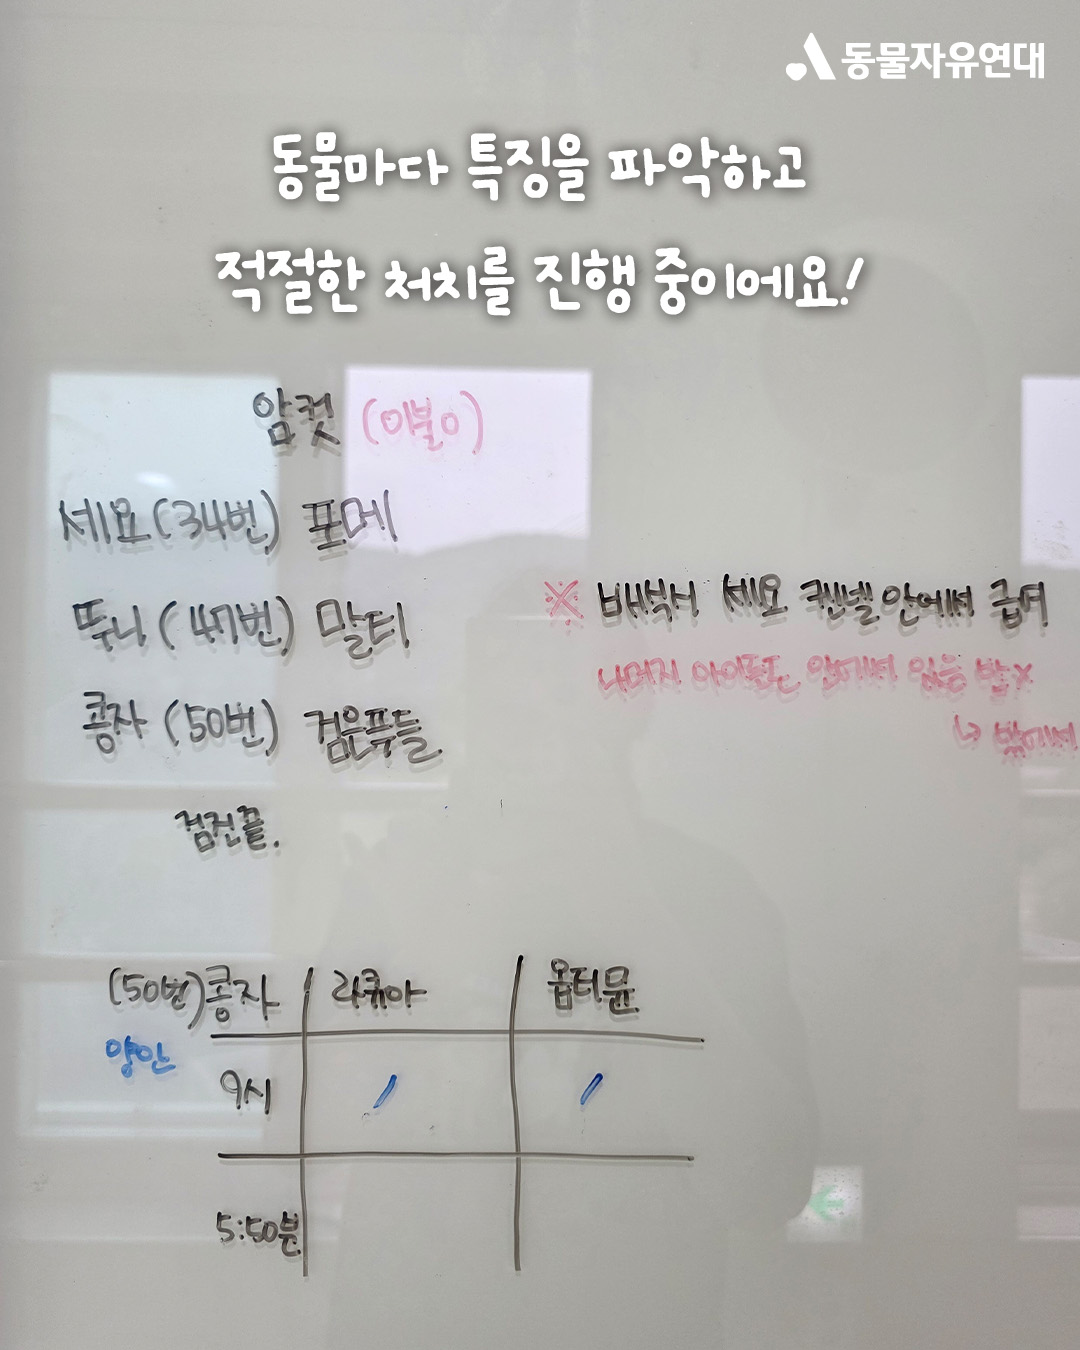 동물자유연대
동물마다 특징을 파악하고
적절한 처치를 진행 중이에요!
암컷 (이불o)
세요 (34번) 포메
뚜니 (47번) 말티
콩자 (50번) 검은푸들
검진끝.
※ 세요 켄넬 안에서 급여
나머지 아이들도 안에서 있음 밥x
↳ 밖에서
(50번) 콩자 라큐아 옵티뮨
양안
9시 / /
5:50분